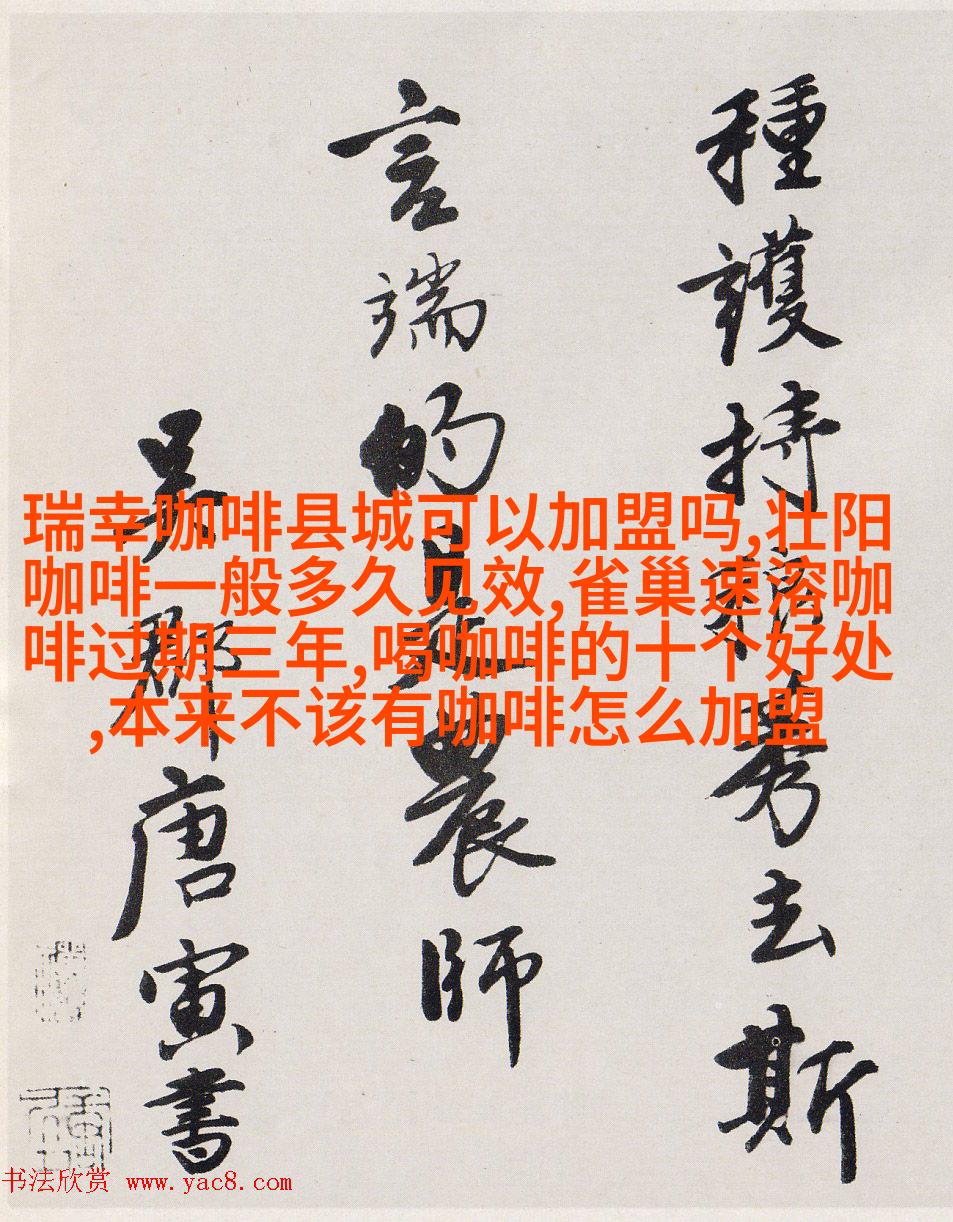 種護持稂莠去斯
言端的是農師
吳郡唐寅書
瑞幸咖啡县城可以加盟吗,壮阳
咖啡一般多久见效,雀巢速溶咖
啡过期三年,喝咖啡的十个好处
,本来不该有咖啡怎么加盟
书法欣赏 www.yac8.com